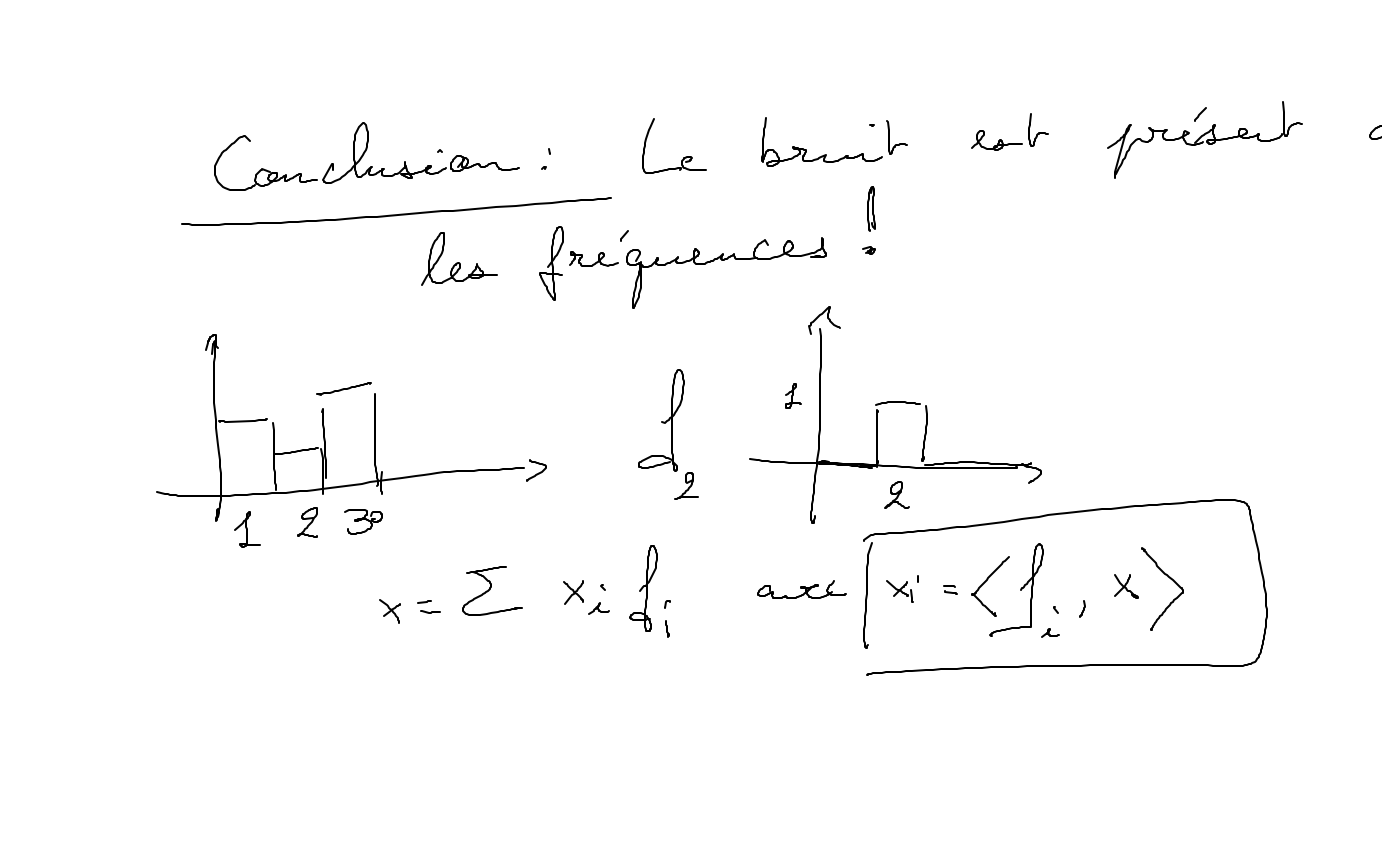 Conclusion : Le bruit est présent
les fréquences !
1
f2
1 2 3
2
x = Σ xi fi avec xi = <fi, x>